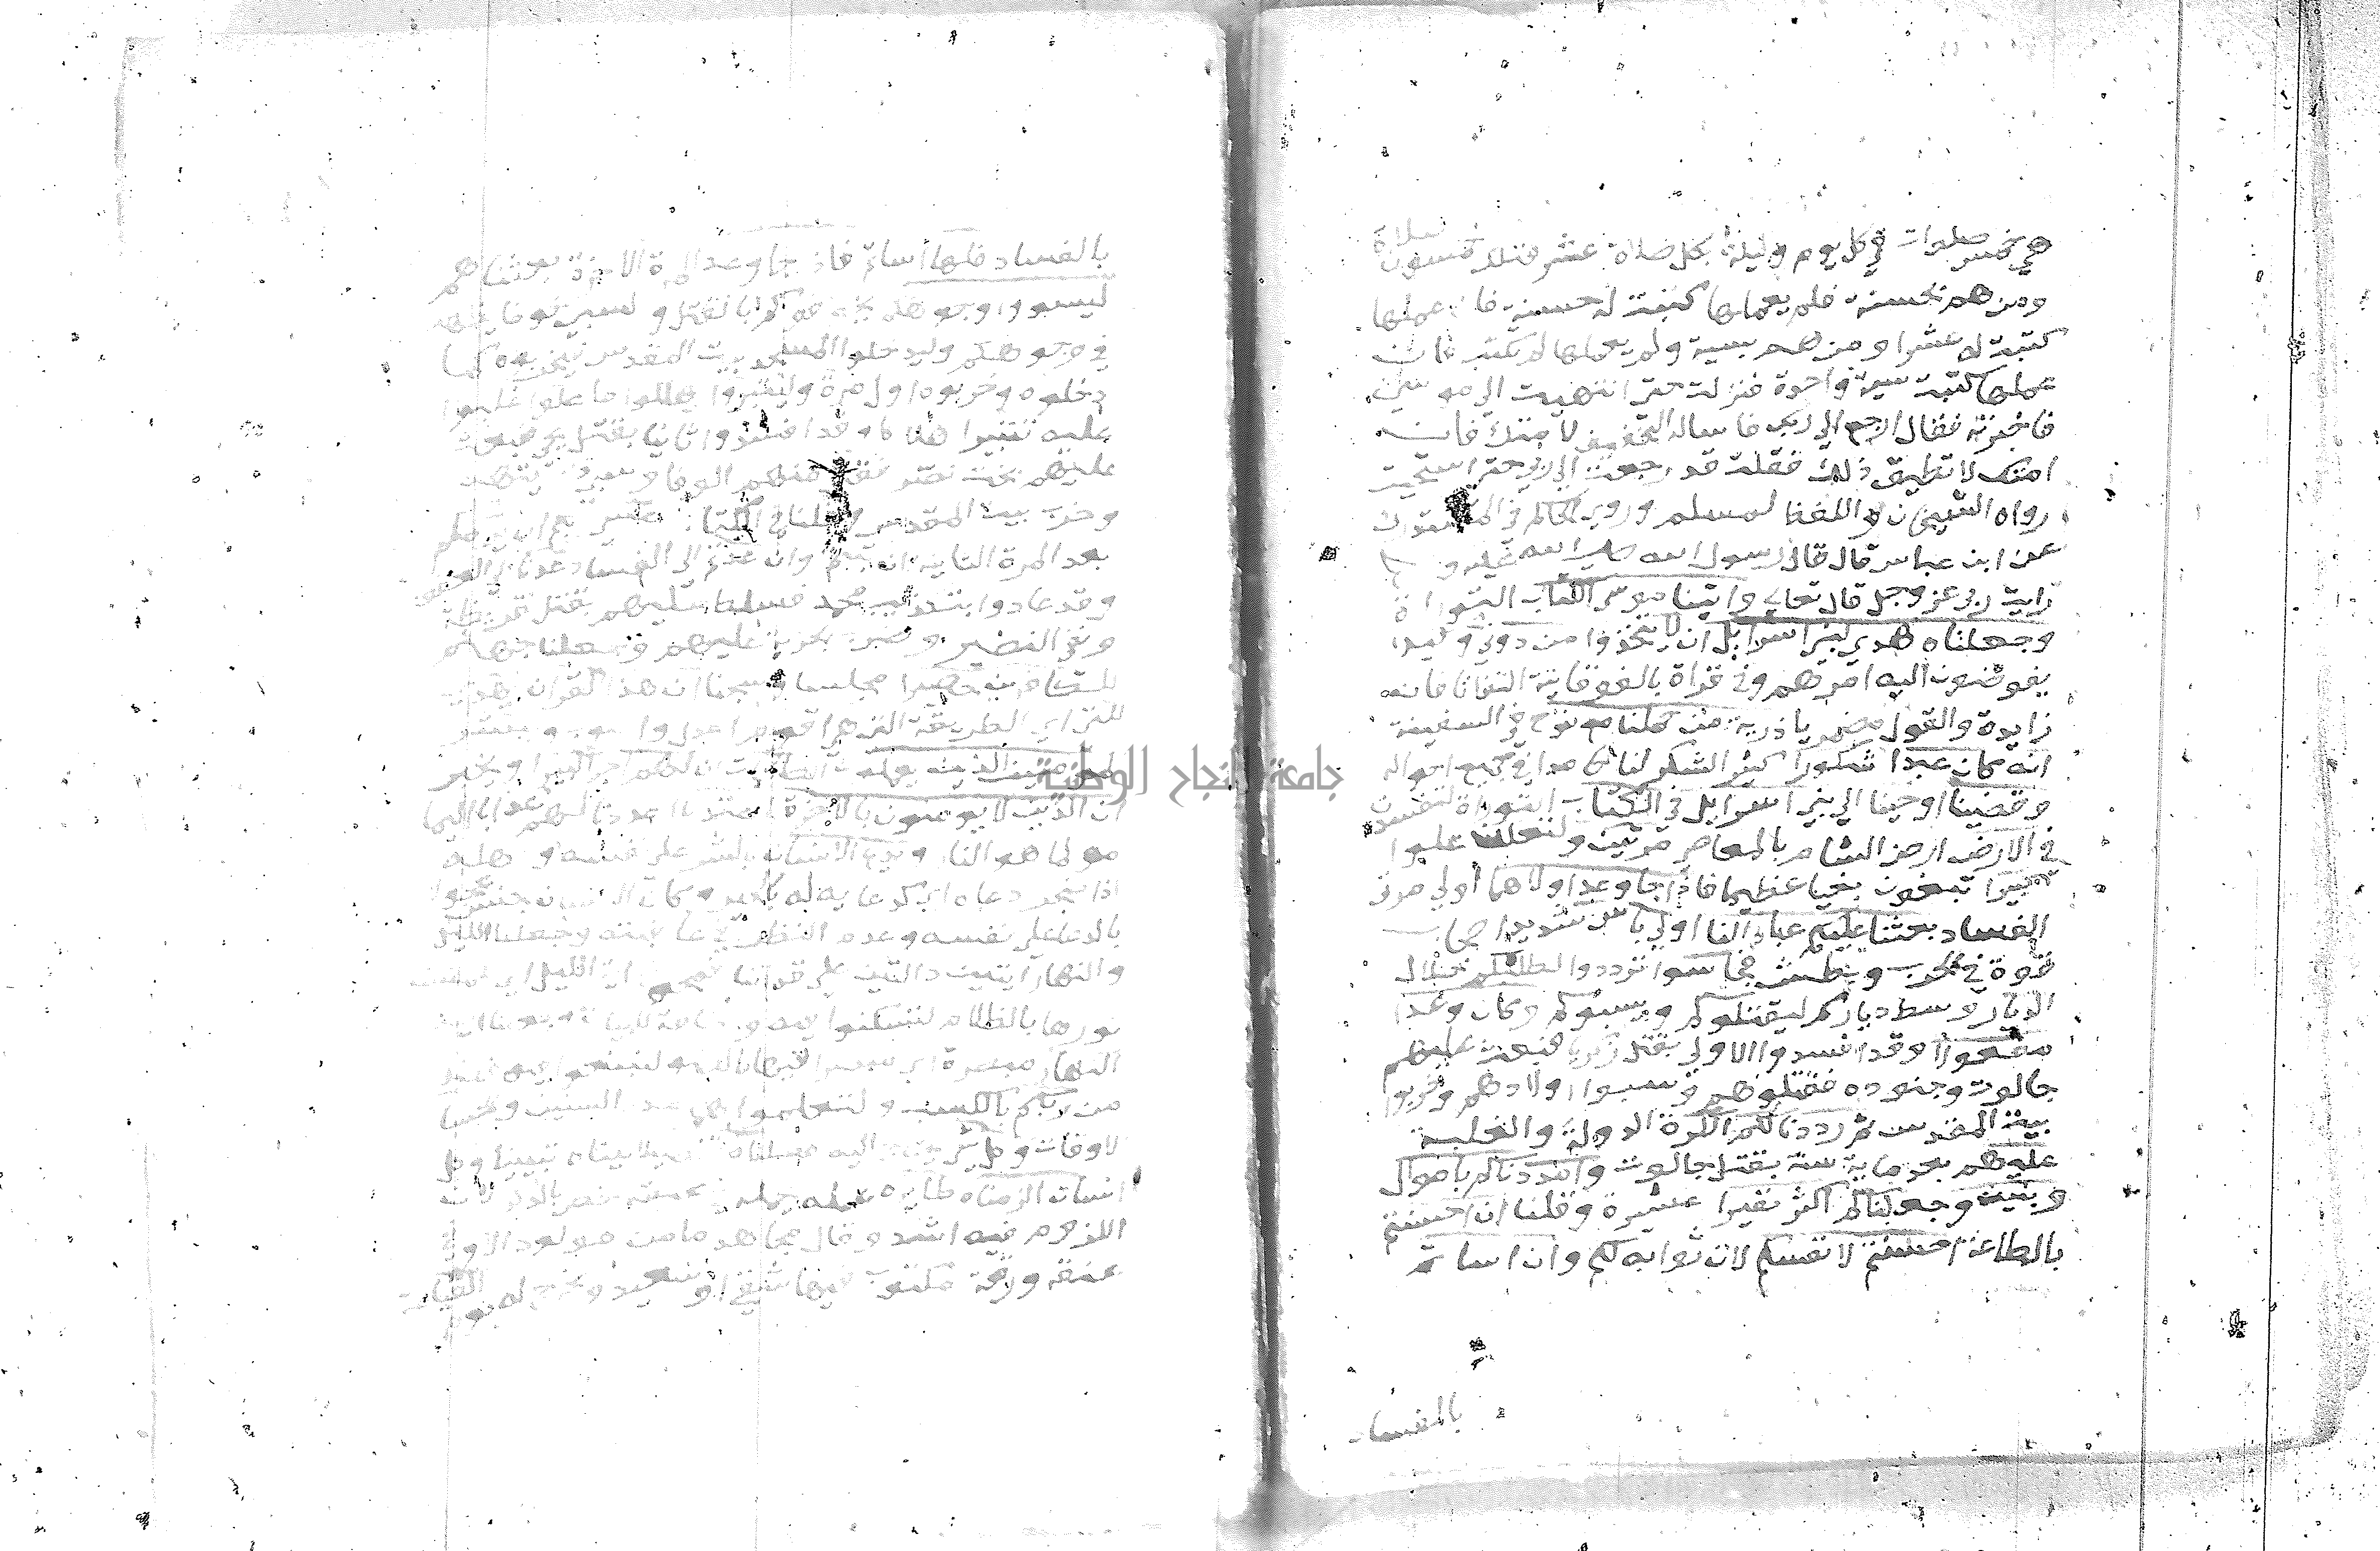 هي خمس صلوات في كل يوم وليلة بكل صلاة عشر فتلك خمسون صلاة
ومن هم بحسنة فلم يعملها كتبت له حسنة فان عملها
كتبت له عشرا ومن هم بسية ولم يعملها لم تكتب فان
عملها كتبت سية واحدة فنزلت حتى انتهيت الي موسي
فاخبرته فقال ارجع الي ربك فاساله التخفيف لامتك فان
امتك لا تطيق ذلك فقلت قد رجعت الي ربي حتي استحيت
رواه الشيخان واللفظ لمسلم وروي الحاكم في المستدرك
عن ابن عباس قال قال رسول الله صلي الله عليه و
رايت ربي عز وجل قال تعالي واتينا موسي الكتاب التوراة
وجعلناه هدي لبني اسرايل ان لا يتخذوا من دوني وكيلا
يفوضون اليه امرهم وفي قراة بالفوقانية التفاتا فان
زايدة والقول مضمر يا ذرية من حملنا مع نوح في السفينة
انه كان عبدا شكورا كثير الشكر لنا حامدا في جميع احواله
وقضينا اوحينا الي بني اسرايل في الكتاب التوراة لتفسدن
في الارض ارض الشام بالمعاصي مرتين ولتعلن علوا
كبيرا تبغون بغيا عظيما فاذا جا وعد اولاهما اولي مرتي
الفساد بعثنا عليكم عبادا لنا اولي باس شديد اصحاب
قوة في الحرب وبطش فجاسوا ترددوا لطلبكم خلال
الديار وسط دياركم ليقتلوكم ويسبوكم وكان وعدا
مفعولا وقد افسدوا الاولي بقتل زكريا فبعث عليهم
جالوت وجنوده فقتلوهم وسبوا اولادهم وخربوا
بيت المقدس ثم رددنا لكم الكرة الدولة والغلبة
عليهم بعد ماية سنة بقتل جالوت وامددناكم باموال
وبنين وجعلناكم اكثر نفيرا عشيرة وقلنا ان احسنتم
بالطاعة احسنتم لانفسكم لان ثوابه لكم وان اساتم
بالفساد
بالفساد فلها اساتكم فاذا جا وعد المرة الاخرة بعثناهم
ليسووا وجوهكم يحزنوكم بالقتل والسبي
في وجوهكم وليدخلوا المسجد بيت المقدس فيخربوه كما
دخلوه وخربوه اول مرة وليتبروا يهلكوا ما علوا غلبوا
عليه تتبيرا هلاكا وقد افسدوا ثانيا بقتل يحي فبعث
عليهم بخت نصر فقتل منهم الوفا وسبي
وخرب بيت المقدس وقلنا في الكتاب عسي ربكم ان يرحمكم
بعد المرة الثانية ان تبتم وان عدتم الي الفساد عدنا الي العقوبة
وقد عادوا بتكذيب محمد فسلط عليهم بقتل قريظة
ونفي النضير وضرب الجزية عليهم وجعلنا جهنم
للكافرين حصيرا محبسا وسجنا ان هذا القران يهدي
للتي اي الطريقة التي هي اقوم اعدل واصوب ويبشر
المومنين الذين يعملون الصالحات ان لهم اجرا كبيرا ويخبر
ان الذين لا يومنون بالاخرة اعتدنا اعددنا لهم عذابا اليما
مولما هو النار ويدع الانسان بالشر علي نفسه واهله
اذا ضجر دعاه اي كدعايه له بالخير وكان الانسان عجولا
بالدعا علي نفسه وعدم النظر في عاقبته وجعلنا الليل
والنهار ايتين دالتين علي قدرتنا فمحونا اية الليل
نورها بالظلام لتسكنوا فيه وجعلنا اية
النهار مبصرة اي مبصرا فيها بالضو لتبتغوا فيه فضلا
من ربكم بالكسب ولتعلموا بهما عدد السنين والحساب
للاوقات وكل شي يحتاج اليه فصلناه تفصيلا بيناه تبيينا وكل
انسان الزمناه طايره عمله يحمله في عنقه خص بالذكر لان
اللزوم فيه اشد وقال مجاهد ما من مولود الا وفي
عنقه ورقة مكتوب فيها شقي او سعيد ونخرج له يوم القيامة
جامعة النجاح الوطنية